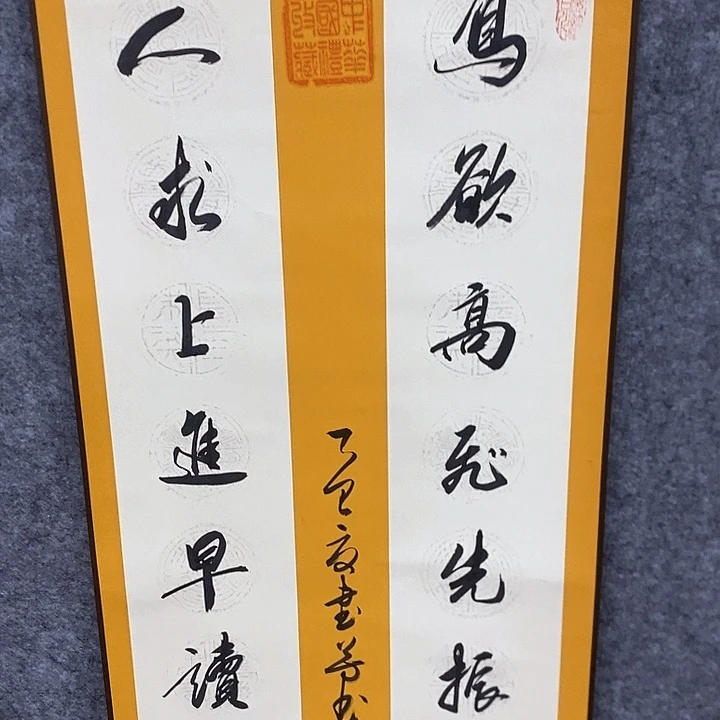 鳥欲高飛先振
中華
國禮
收藏
乙巳夏書
人求上進早讀